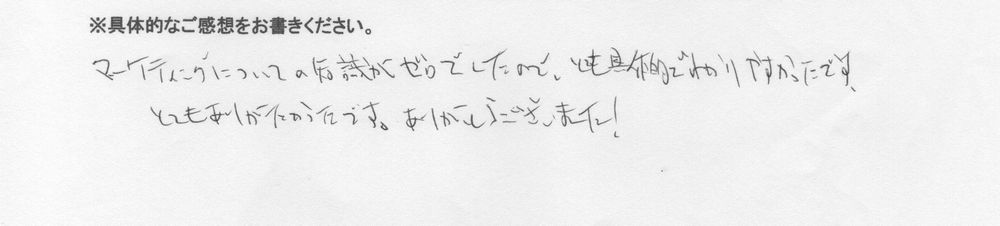 ※具体的なご感想をお書きください。
マーケティングについての知識がゼロでしたので、とても具体的でわかりやすかったです。
とてもありがたかったです。ありがとうございました!